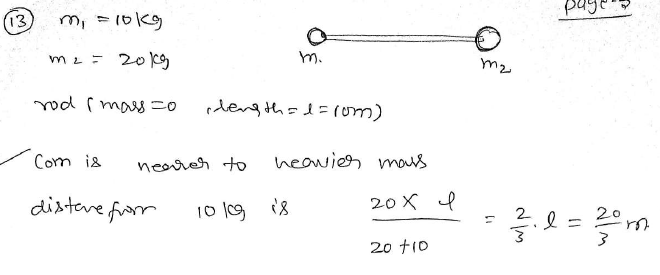 page-5
(13) m₁ = 10 kg
m₂ = 20 kg
m₁ m₂
rod (mass = 0 , length = l = 10m)
Com is nearer to heavier mass
distance from 10 kg is 20 × l / 20 + 10 = 2/3 . l = 20/3 m